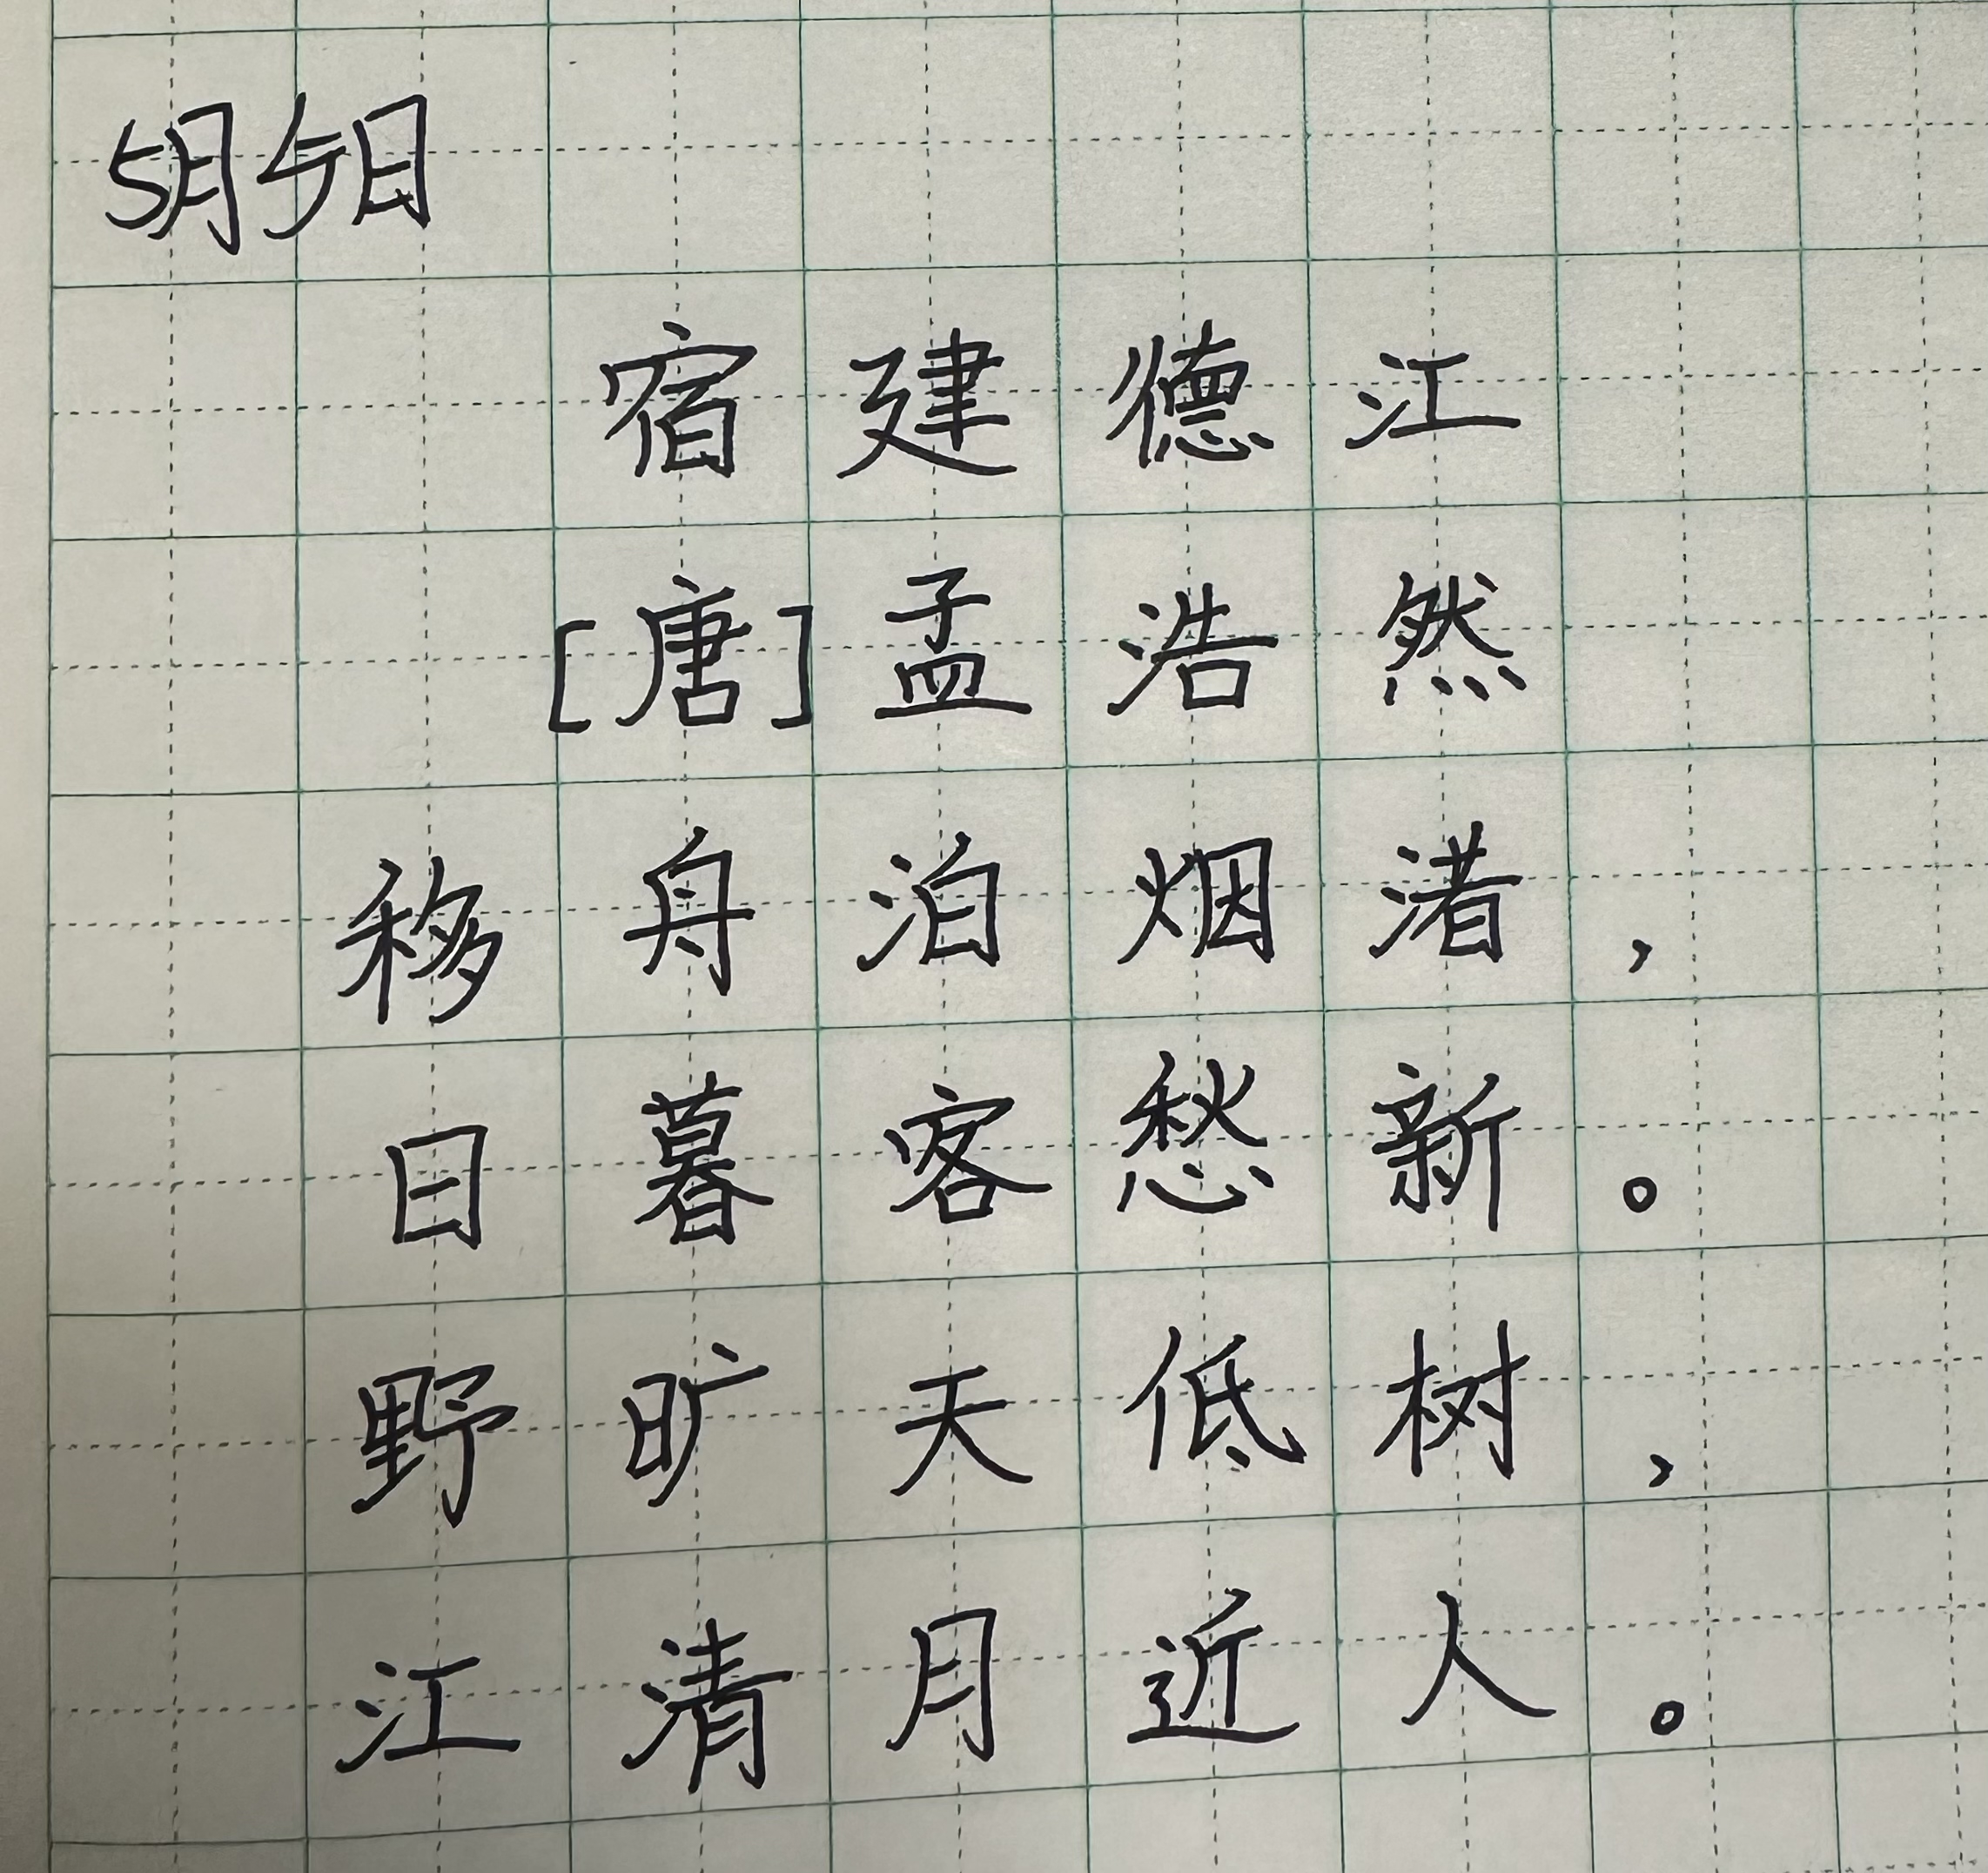 5月5日
宿建德江
[唐]孟浩然
移舟泊烟渚，
日暮客愁新。
野旷天低树，
江清月近人。